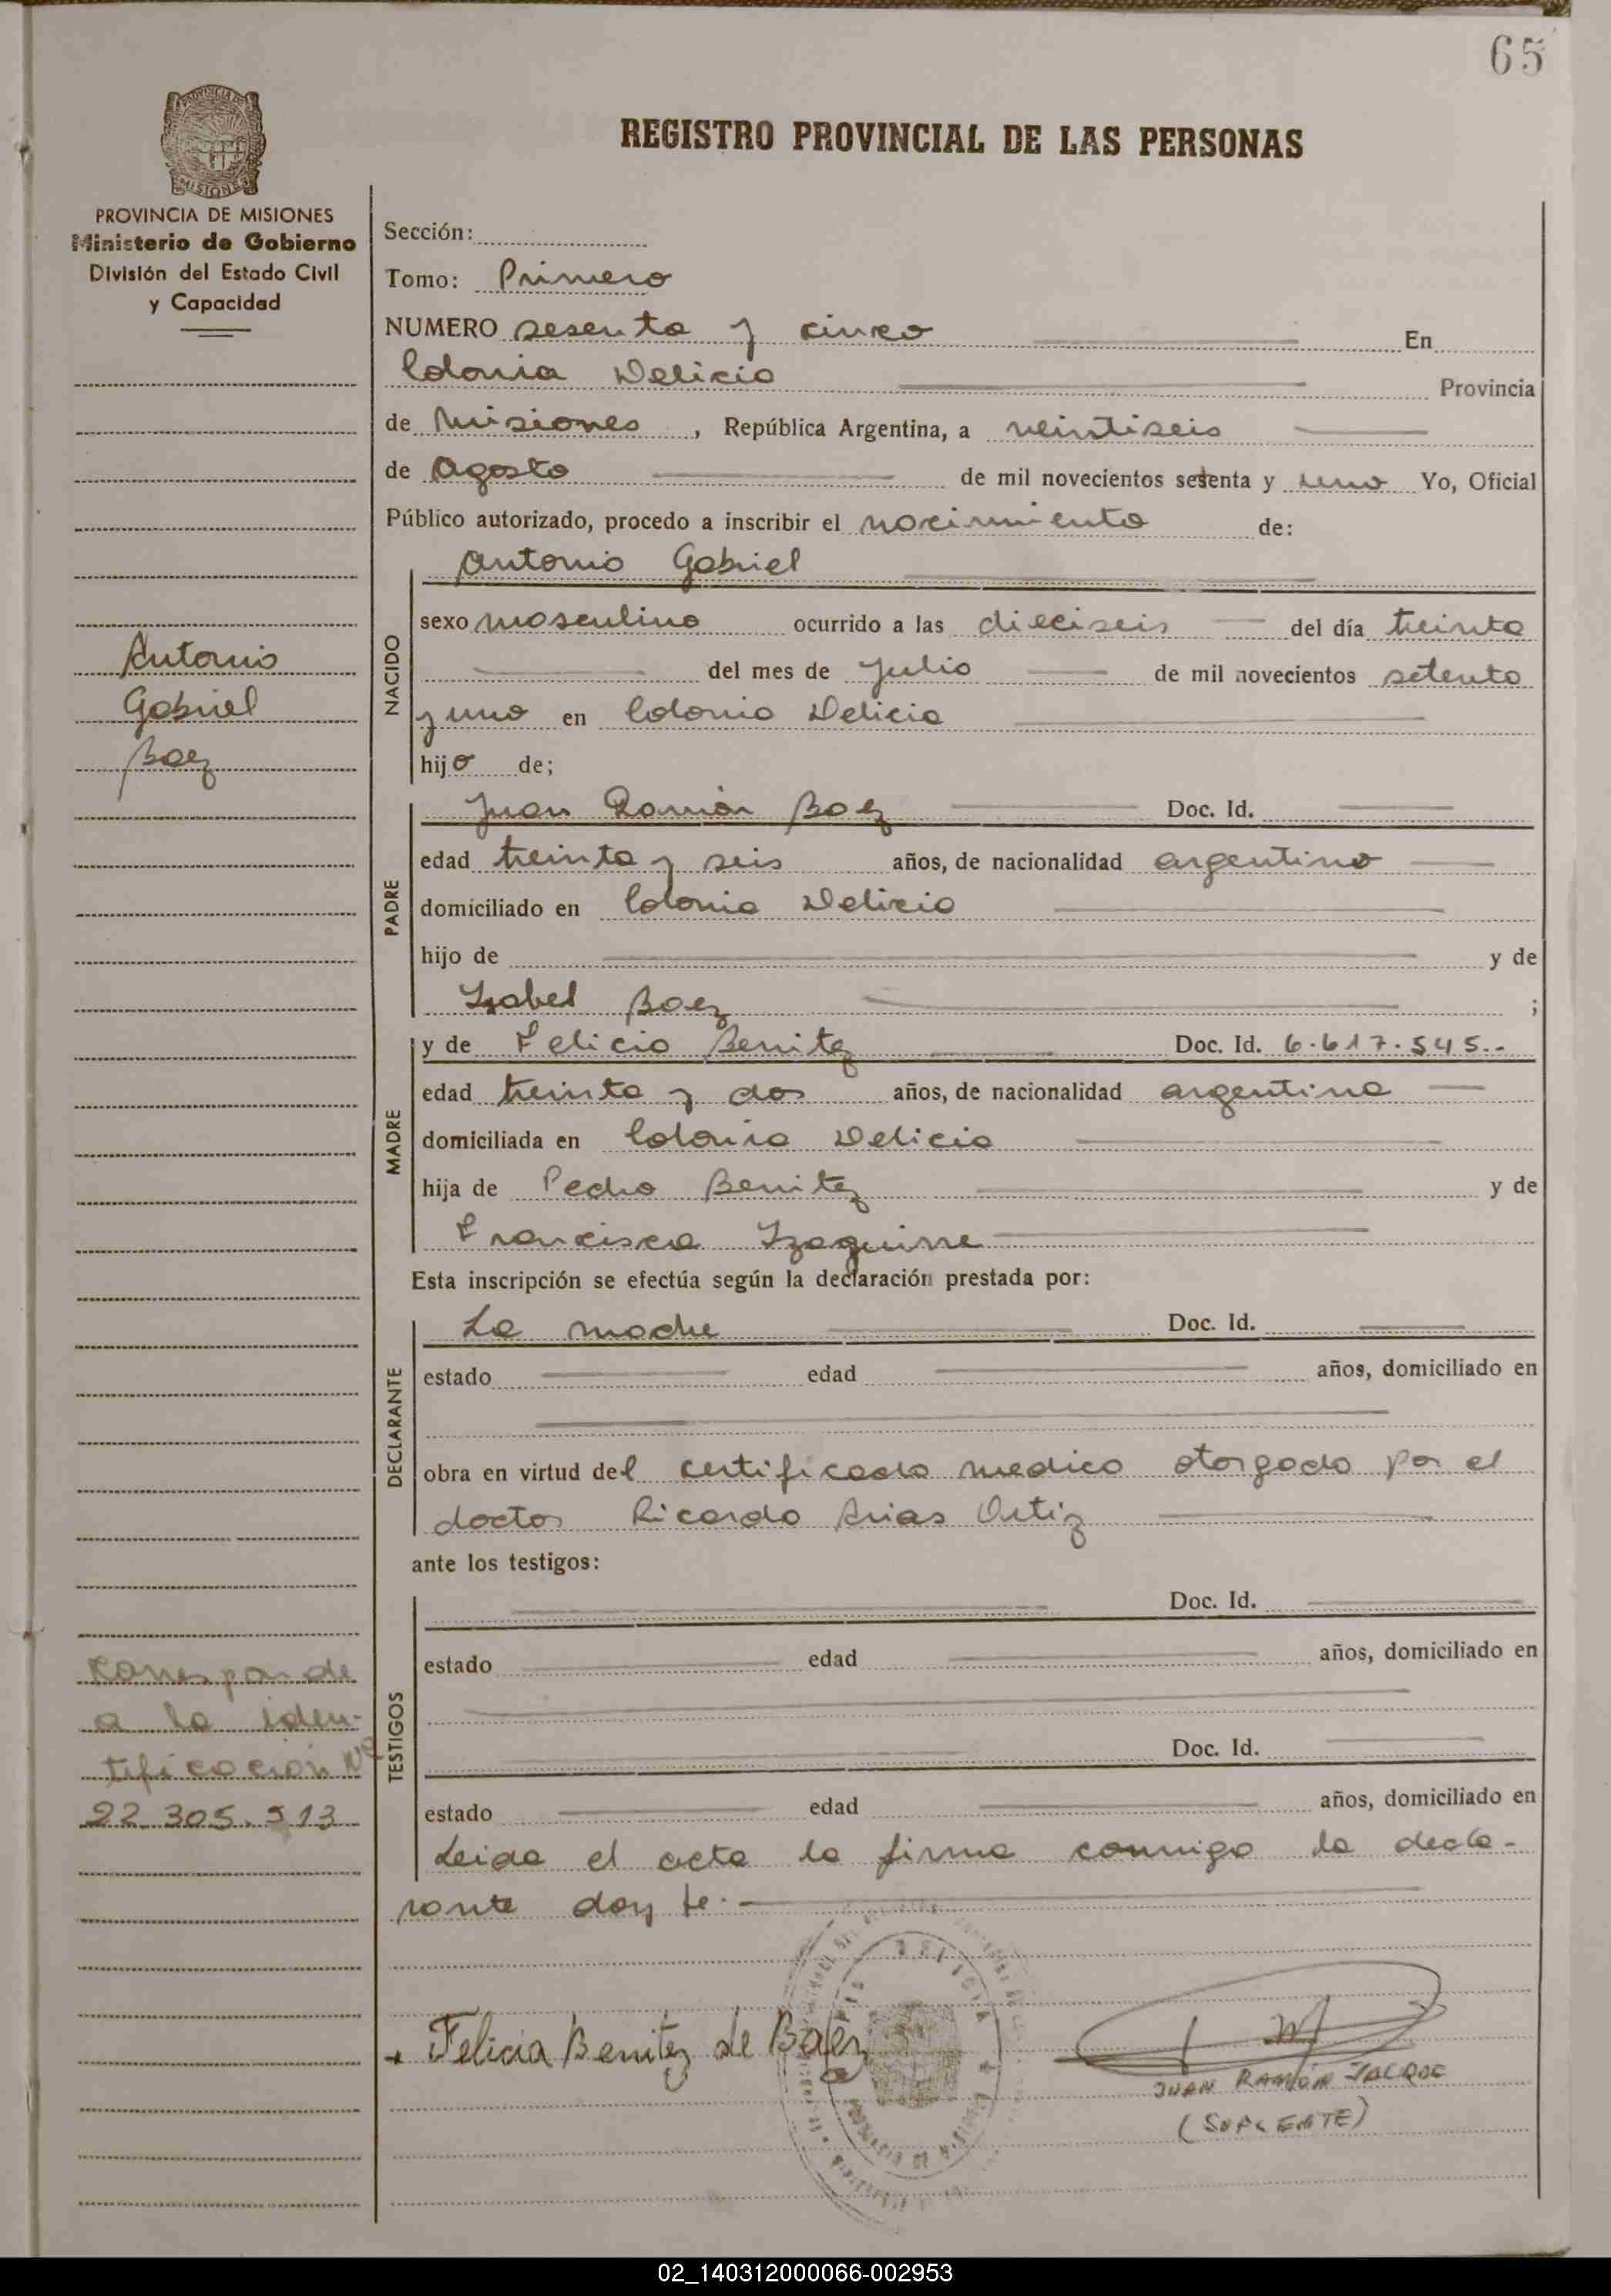 65
REGISTRO PROVINCIAL DE LAS PERSONAS
PROVINCIA DE MISIONES
Ministerio de Gobierno
División del Estado Civil
y Capacidad
Sección:
Tomo: Primero
NUMERO sesenta y cinco En
Colonia Delicia Provincia
de Misiones, República Argentina, a veintiseis
de Agosto de mil novecientos setenta y uno Yo, Oficial
Público autorizado, procedo a inscribir el nacimiento de:
Antonio Gabriel
NACIDO
sexo masculino ocurrido a las dieciseis del día treinta
del mes de Julio de mil novecientos setenta
y uno en Colonia Delicia
hijo de;
Antonio
Gabriel
Baez
PADRE
Juan Ramón Baez Doc. Id.
edad treinta y seis años, de nacionalidad argentino
domiciliado en Colonia Delicia
hijo de y de
Izabel Baez ;
MADRE
y de Felicia Benitez Doc. Id. 6.617.545.-
edad treinta y dos años, de nacionalidad argentina
domiciliada en Colonia Delicia
hija de Pedro Benitez y de
Francisca Izaguirre
Esta inscripción se efectúa según la declaración prestada por:
DECLARANTE
La madre Doc. Id.
estado edad años, domiciliado en
obra en virtud del certificado medico otorgado por el
doctor Ricardo Arias Ortiz
ante los testigos:
TESTIGOS
Doc. Id.
estado edad años, domiciliado en
Doc. Id.
estado edad años, domiciliado en
Leida el acta la firma conmigo la decla-
rante doy fe.
Corresponde
a la iden-
tificacion Nº
22.305.913
Felicia Benitez de Baez
JUAN RAMÓN
(SUPLENTE)
02_140312000066-002953